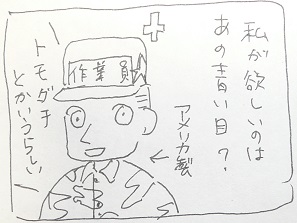 私が欲しいのは
あの青い目?
アメリカ製
作業員
トモダチ
とかいうらしい